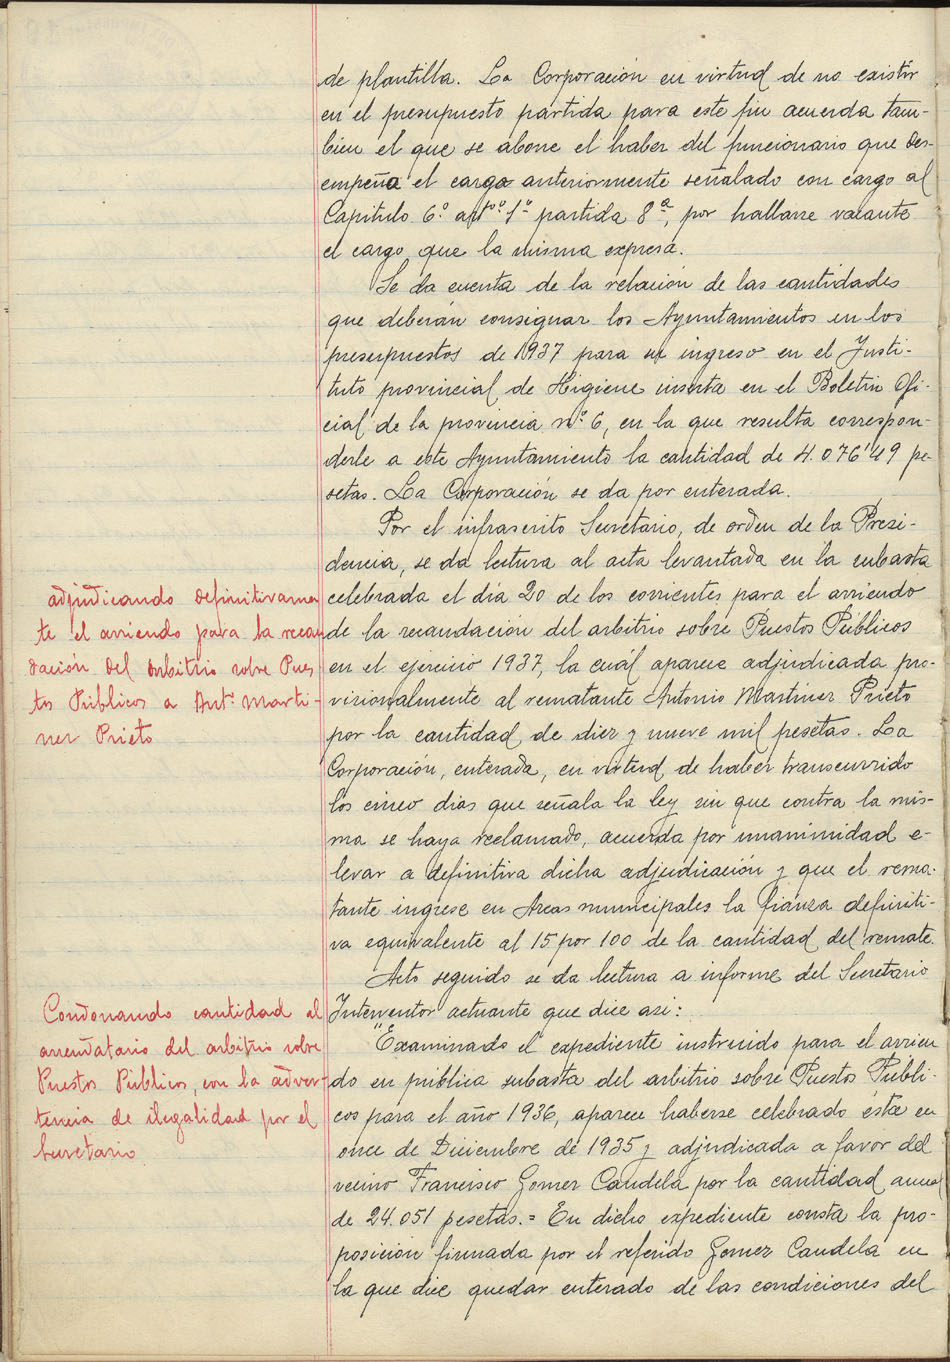 de plantilla. La Corporación en virtud de no existir
en el presupuesto partida para este fin acuerda tam-
bien el que se abone el haber del funcionario que des-
empeña el cargo anteriormente señalado con cargo al
Capitulo 6.º artº. 1º partida 8ª, por hallarse vacante
el cargo que la misma expresa.
Se da cuenta de la relación de las cantidades
que deberán consignar los Ayuntamientos en los
presupuestos de 1937 para su ingreso en el Insti-
tuto provincial de Higiene inserta en el Boletin Ofi-
cial de la provincia nº 6, en la que resulta correspon-
derle a este Ayuntamiento la cantidad de 4.076'49 pe-
setas. La Corporación se da por enterada.
Por el infrascrito Secretario, de orden de la Presi-
dencia, se da lectura al acta levantada en la subasta
celebrada el día 20 de los corrientes para el arriendo
de la recaudación del arbitrio sobre Puestos Públicos
en el ejercicio 1937, la cuál aparece adjudicada pro-
visionalmente al rematante Antonio Martinez Prieto
por la cantidad de diez y nueve mil pesetas. La
Corporación, enterada, en virtud de haber transcurrido
los cinco dias que señala la ley sin que contra la mis-
ma se haya reclamado, acuerda por unanimidad e-
levar a definitiva dicha adjudicación y que el rema-
tante ingrese en Arcas municipales la fianza definiti-
va equivalente al 15 por 100 de la cantidad del remate.
Acto seguido se da lectura a informe del Secretario
Interventor actuante que dice asi:
"Examinado el expediente instruido para el arrien
do en pública subasta del arbitrio sobre Puestos Públi-
cos para el año 1936, aparece haberse celebrado ésta en
once de Diciembre de 1935 y adjudicada a favor del
vecino Francisco Gomez Candela por la cantidad anual
de 24.051 pesetas.= En dicho expediente consta la pro-
posicion firmada por el referido Gomez Candela en
la que dice quedar enterado de las condiciones del
adjudicando definitivamen
te el arriendo para la recau
dación del arbitrio sobre Pues
tos Públicos a Antº. Marti-
nez Prieto
Condonando cantidad al
arrendatario del arbitrio sobre
Puestos Públicos, con la adver-
tencia de ilegalidad por el
Secretario